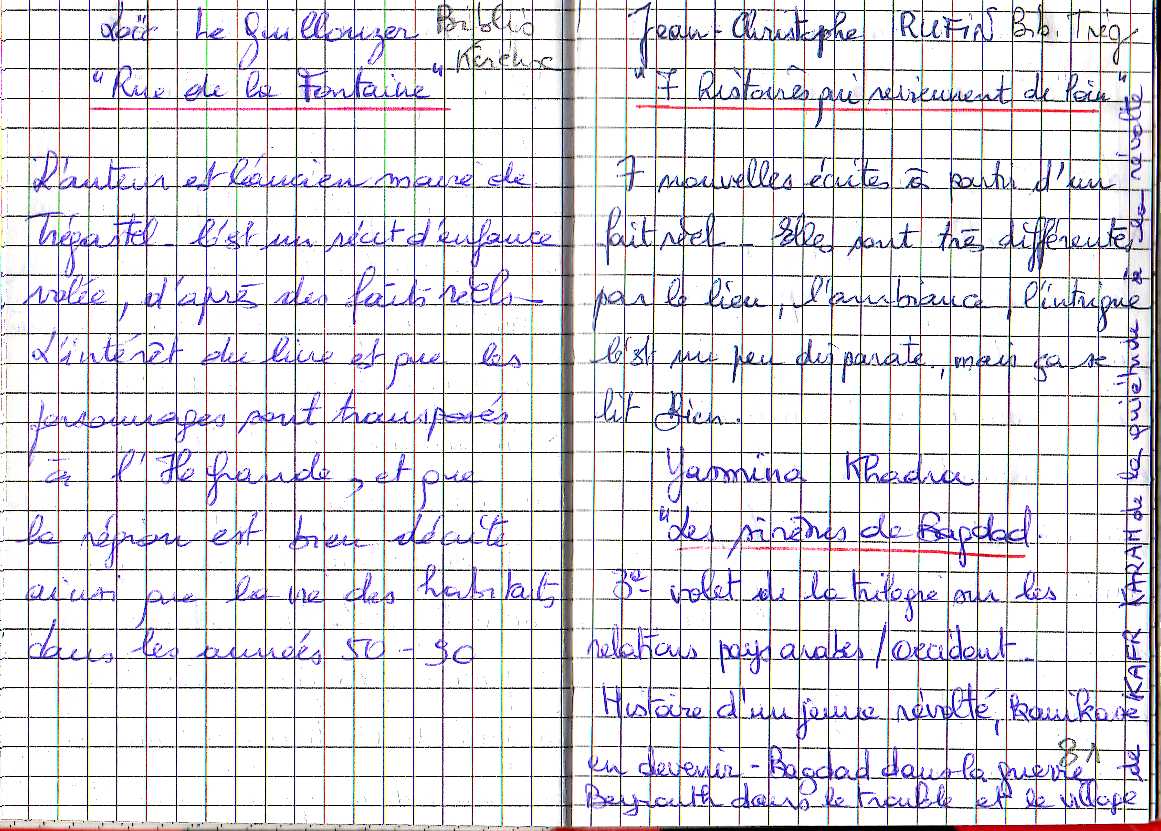 Loïc Le Guillouzer Biblio
"Rue de la Fontaine"
L'auteur est l'ancien maire de
Trégastel - C'est un récit d'enfance
volée, d'après des faits réels -
L'intérêt du livre est que les
personnages sont transposés
à l'Ile Grande, et que
la région est bien décrite
ainsi que la vie des habitats
dans les années 50 - 90
Jean-Christophe RUFIN Bib. Trég
"7 histoires qui reviennent de loin"
7 nouvelles écrites à partir d'un
fait réel - Elles sont très différentes
par le lieu, l'ambiance, l'intrigue
C'est un peu disparate, mais ça se
lit Bien.
Yasmina Khadra
"Les sirènes de Bagdad.
3e volet de la trilogie sur les
relations pays arabes / Occident -
Histoire d'un jeune révolté, kamikase
en devenir - Bagdad dans la guerre
Beyrouth dans le trouble et le village
de KAFR KARAM de la quiétude à la révolte
81